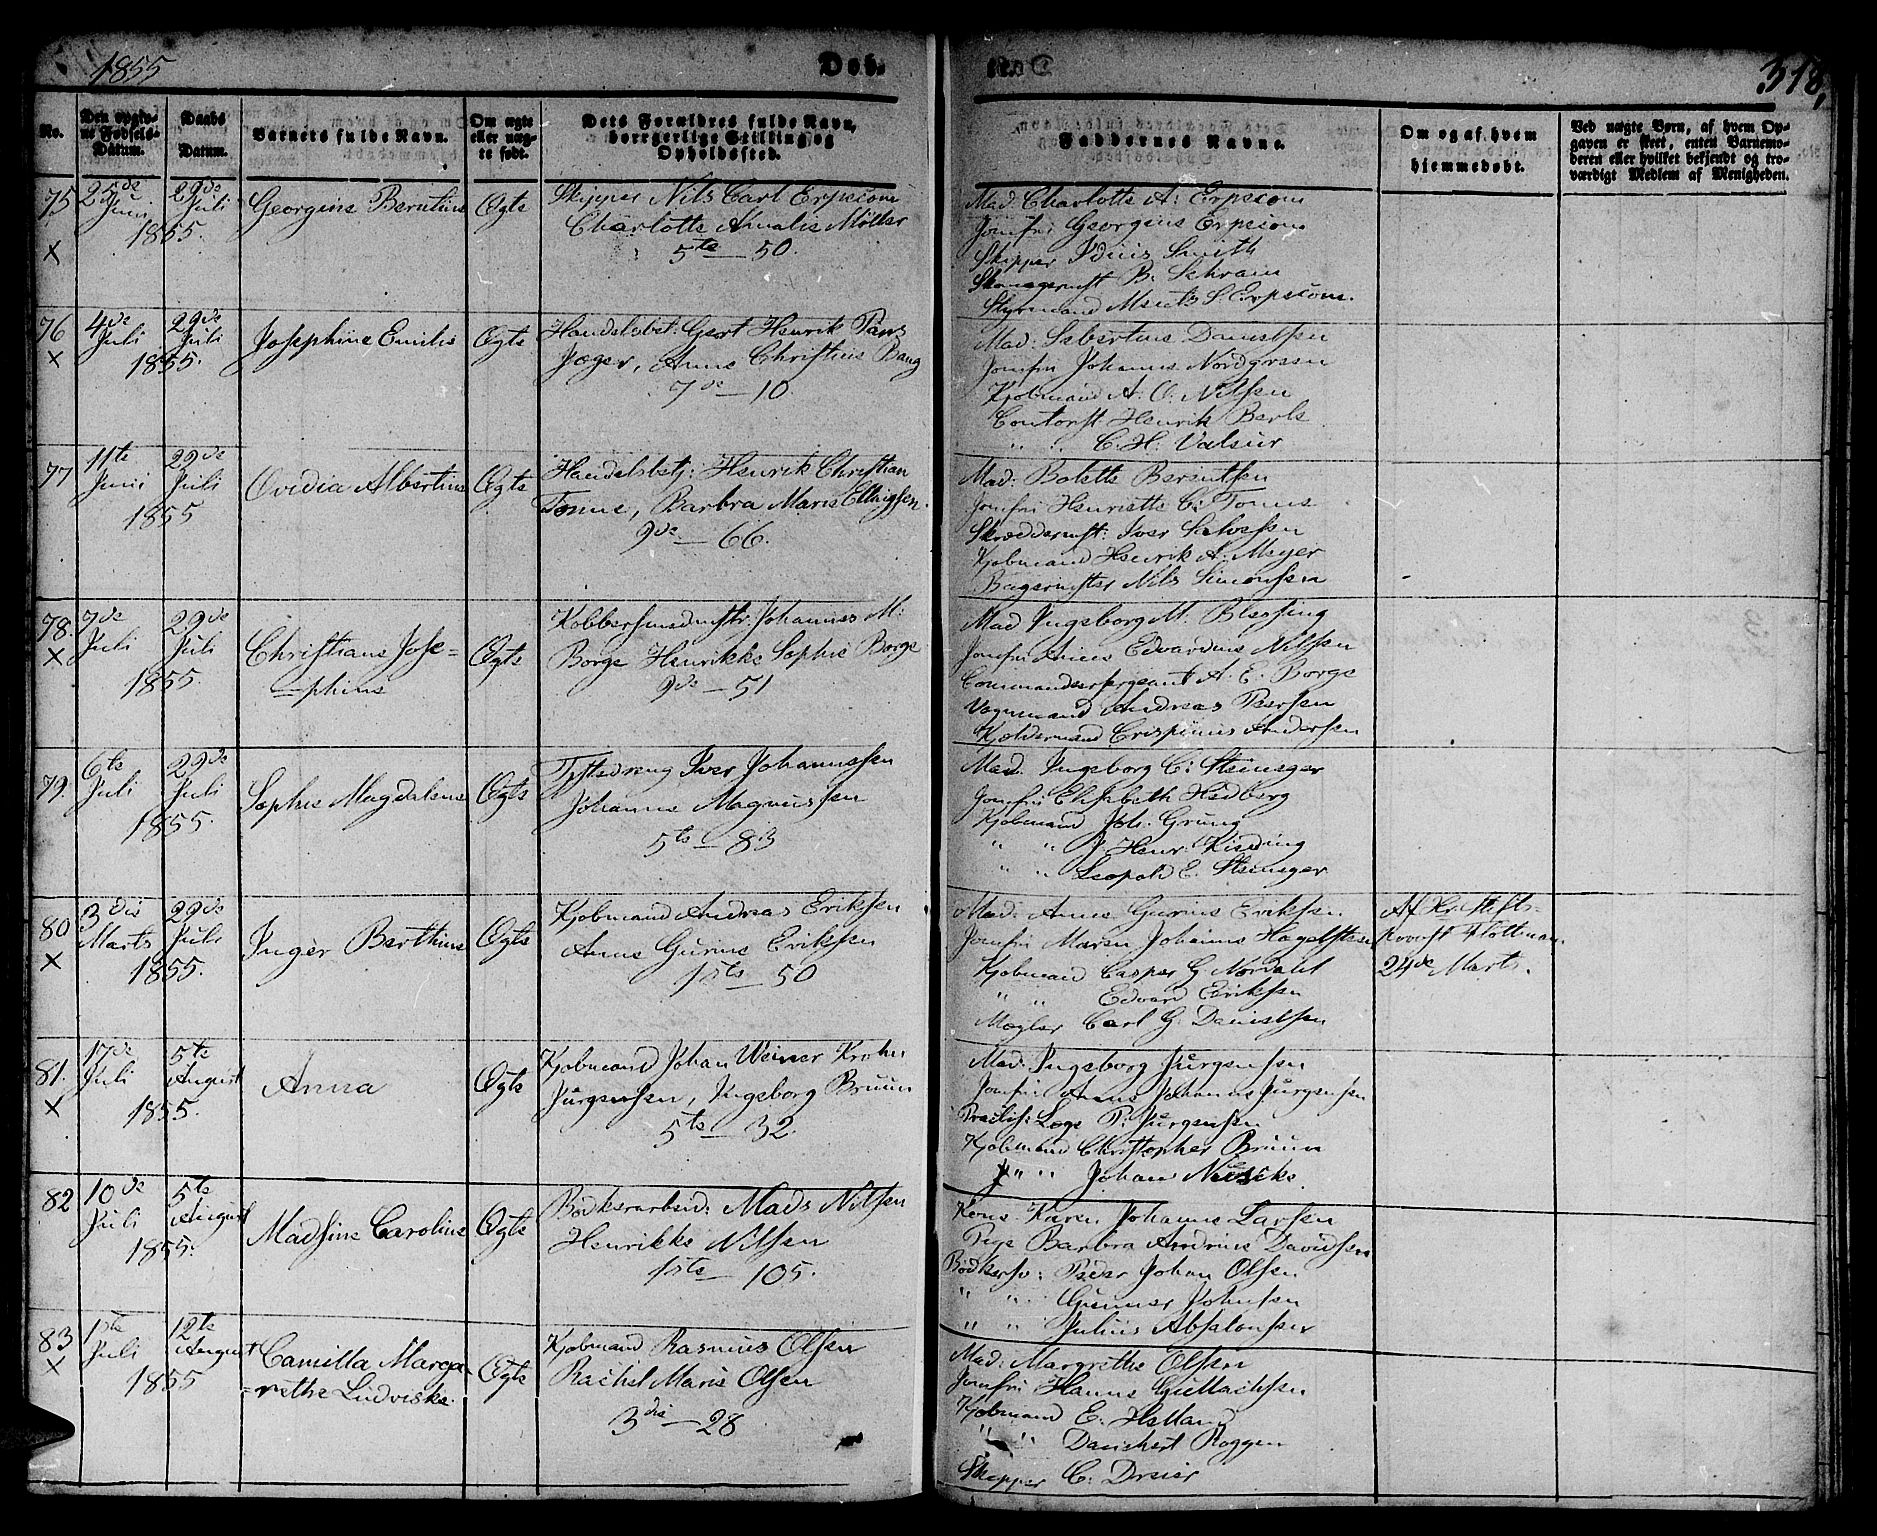 1855
Døb.
318.
No.
Den opgivne Fødsels-Datum.
Daabs Datum.
Barnets fulde Navn.
Om ægte eller uægte født.
Dets Forældres fulde Navn, borgerlige Stilling og Opholdssted.
Faddernes Navne.
Om og af hvem hjemmedøbt.
Ved uægte Børn, af hvem Opgaven er skeet, enten Barnemoderen eller hvilket bekjendt og troværdigt Medlem af Menigheden.
75 X
25de Juni
29de Juli
1855.
Georgine Berntine
Ægte
Skipper Nils Carl Erpecom
Charlotte Amalie Möller
5te — 50.
Mad: Charlotte A: Erpecom
Jomfru Georgine Erpecom
Skipper Smith
B. Schram
Styrmand S. Erpecom.
76 X
4de Juli
29de Juli
1855.
Josephine Emilie
Ægte
Handelsbet: Gert Henrik Pans
Jæger, Anne Christine Bang
7de — 10.
Mad: Danielsen
Jomfru Johanne Nordgreen
Kjøbmand A. O. Nilsen
Contorist Henrik Berle
" " C. H. Valeur
77
11te Juni
29de Juli
1855
Ovidia Albertine
Ægte
Handelsbetj: Henrik Christian
Tonne, Barbra Marie Ellingsen.
9de — 66.
Mad: Bolette Berentsen
Jomfru Henriette C. Tonne
Skreddermst: Iver
Kjøbmand Henrik A. Meyer
Bagermster Nils Simonsen
78. X
7de Juli
29de Juli
1855.
Christiane Jose=
=phine
Ægte
Kobbersmedmstr: Johannes M:
Borge Henrikke Sophie Borge
9de — 51
Mad Ingeborg M. Blessing
Jomfru Edvardine Nilsen
Commandeersergeant A. E. Borge
Vognmand Andreas Peersen
Crispinus Andersen
79.
6te Juli
29de Juli
1855.
Sophie Magdalene
Ægte
Iver Johannessen
Johanne Magnussen
5te — 83
Mad. Ingeborg C: Steineger
Jomfru Elisabeth Hedberg
Kjøbmand Joh: Grung
" " J. Henr: Kieding
" " Leopold E. Steineger
80 X
3die Marts
29de Juli
1855.
Inger Berthine
Ægte
Kjøbmand Andreas Eriksen
Anne Gurine Eriksen
1ste — 50
Mad: Anne Gurine Eriksen
Jomfru Maren Johanne Hagelsteen
Kjøbmand Casper G Nordahl
" " Edvard Eriksen
Mægler Carl G. Danielsen
Af Hr Stifts-
Provst Flottman.
24de Marts.
81. X
17de Juli
5te August
1855.
Anna
Ægte
Kjøbmand Johan Weiner Krohn
Jürgensen, Ingeborg Bruun
5te — 32.
Mad: Ingeborg Jürgensen
Jomfru Anne Johanne Jürgensen
Læge P. Jürgensen
Kjøbmand Christopher Bruun
" " Johan
82
10de Juli
5te August
1855.
Madsine Caroline
Ægte
Bødkerarbeid: Mads Nilsen
Henrikke Nilsen
1ste — 105.
Kone Karen Johanne Larsen
Pige Barbra Andrine Davidsen
Bødkersv: Peder Johan Olsen
" " Gunner Johnsen
" " Julius Absalonsen
83 X
1ste Juli
12te August
1855
Camilla Marga
=rethe Ludviske.
Ægte
Kjøbmand Rasmus Olsen
Rachel Marie Olsen
3die — 28
Mad: Margrethe Olsen
Jomfru Hanne Gullachsen
Kjøbmand E. Helland
" " Danckert Roggen
Skipper C. Dreier